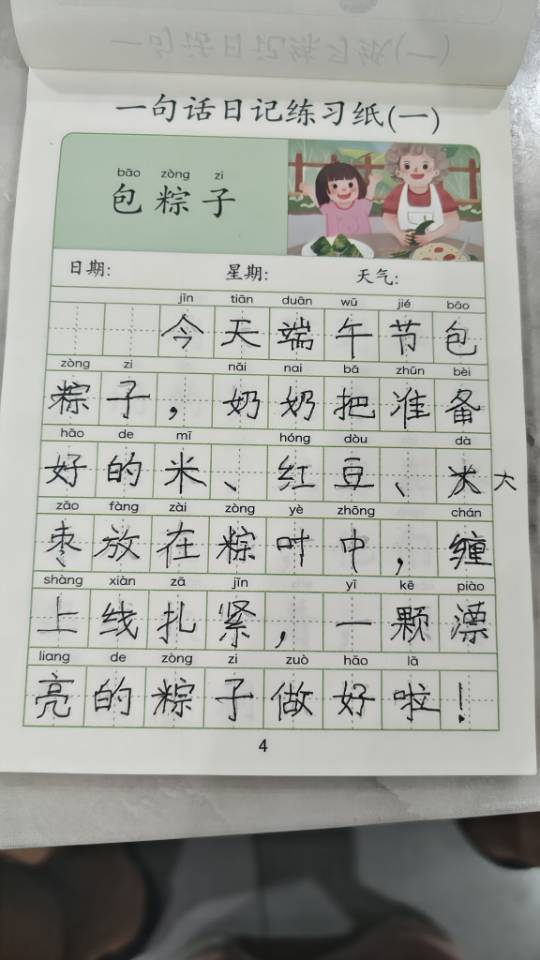 一句话日记练习纸(一)
bāo zòng zi
包粽子
日期: 星期: 天气:
jīn tiān duān wǔ jié bāo
今天端午节包
zòng zi nǎi nai bǎ zhǔn bèi
粽子，奶奶把准备
hǎo de mǐ hóng dòu dà
好的米、红豆、大
zǎo fàng zài zòng yè zhōng chán
枣放在粽叶中，缠
shàng xiàn zā jǐn yī kē piào
上线扎紧，一颗漂
liang de zòng zi zuò hǎo lā
亮的粽子做好啦！
4